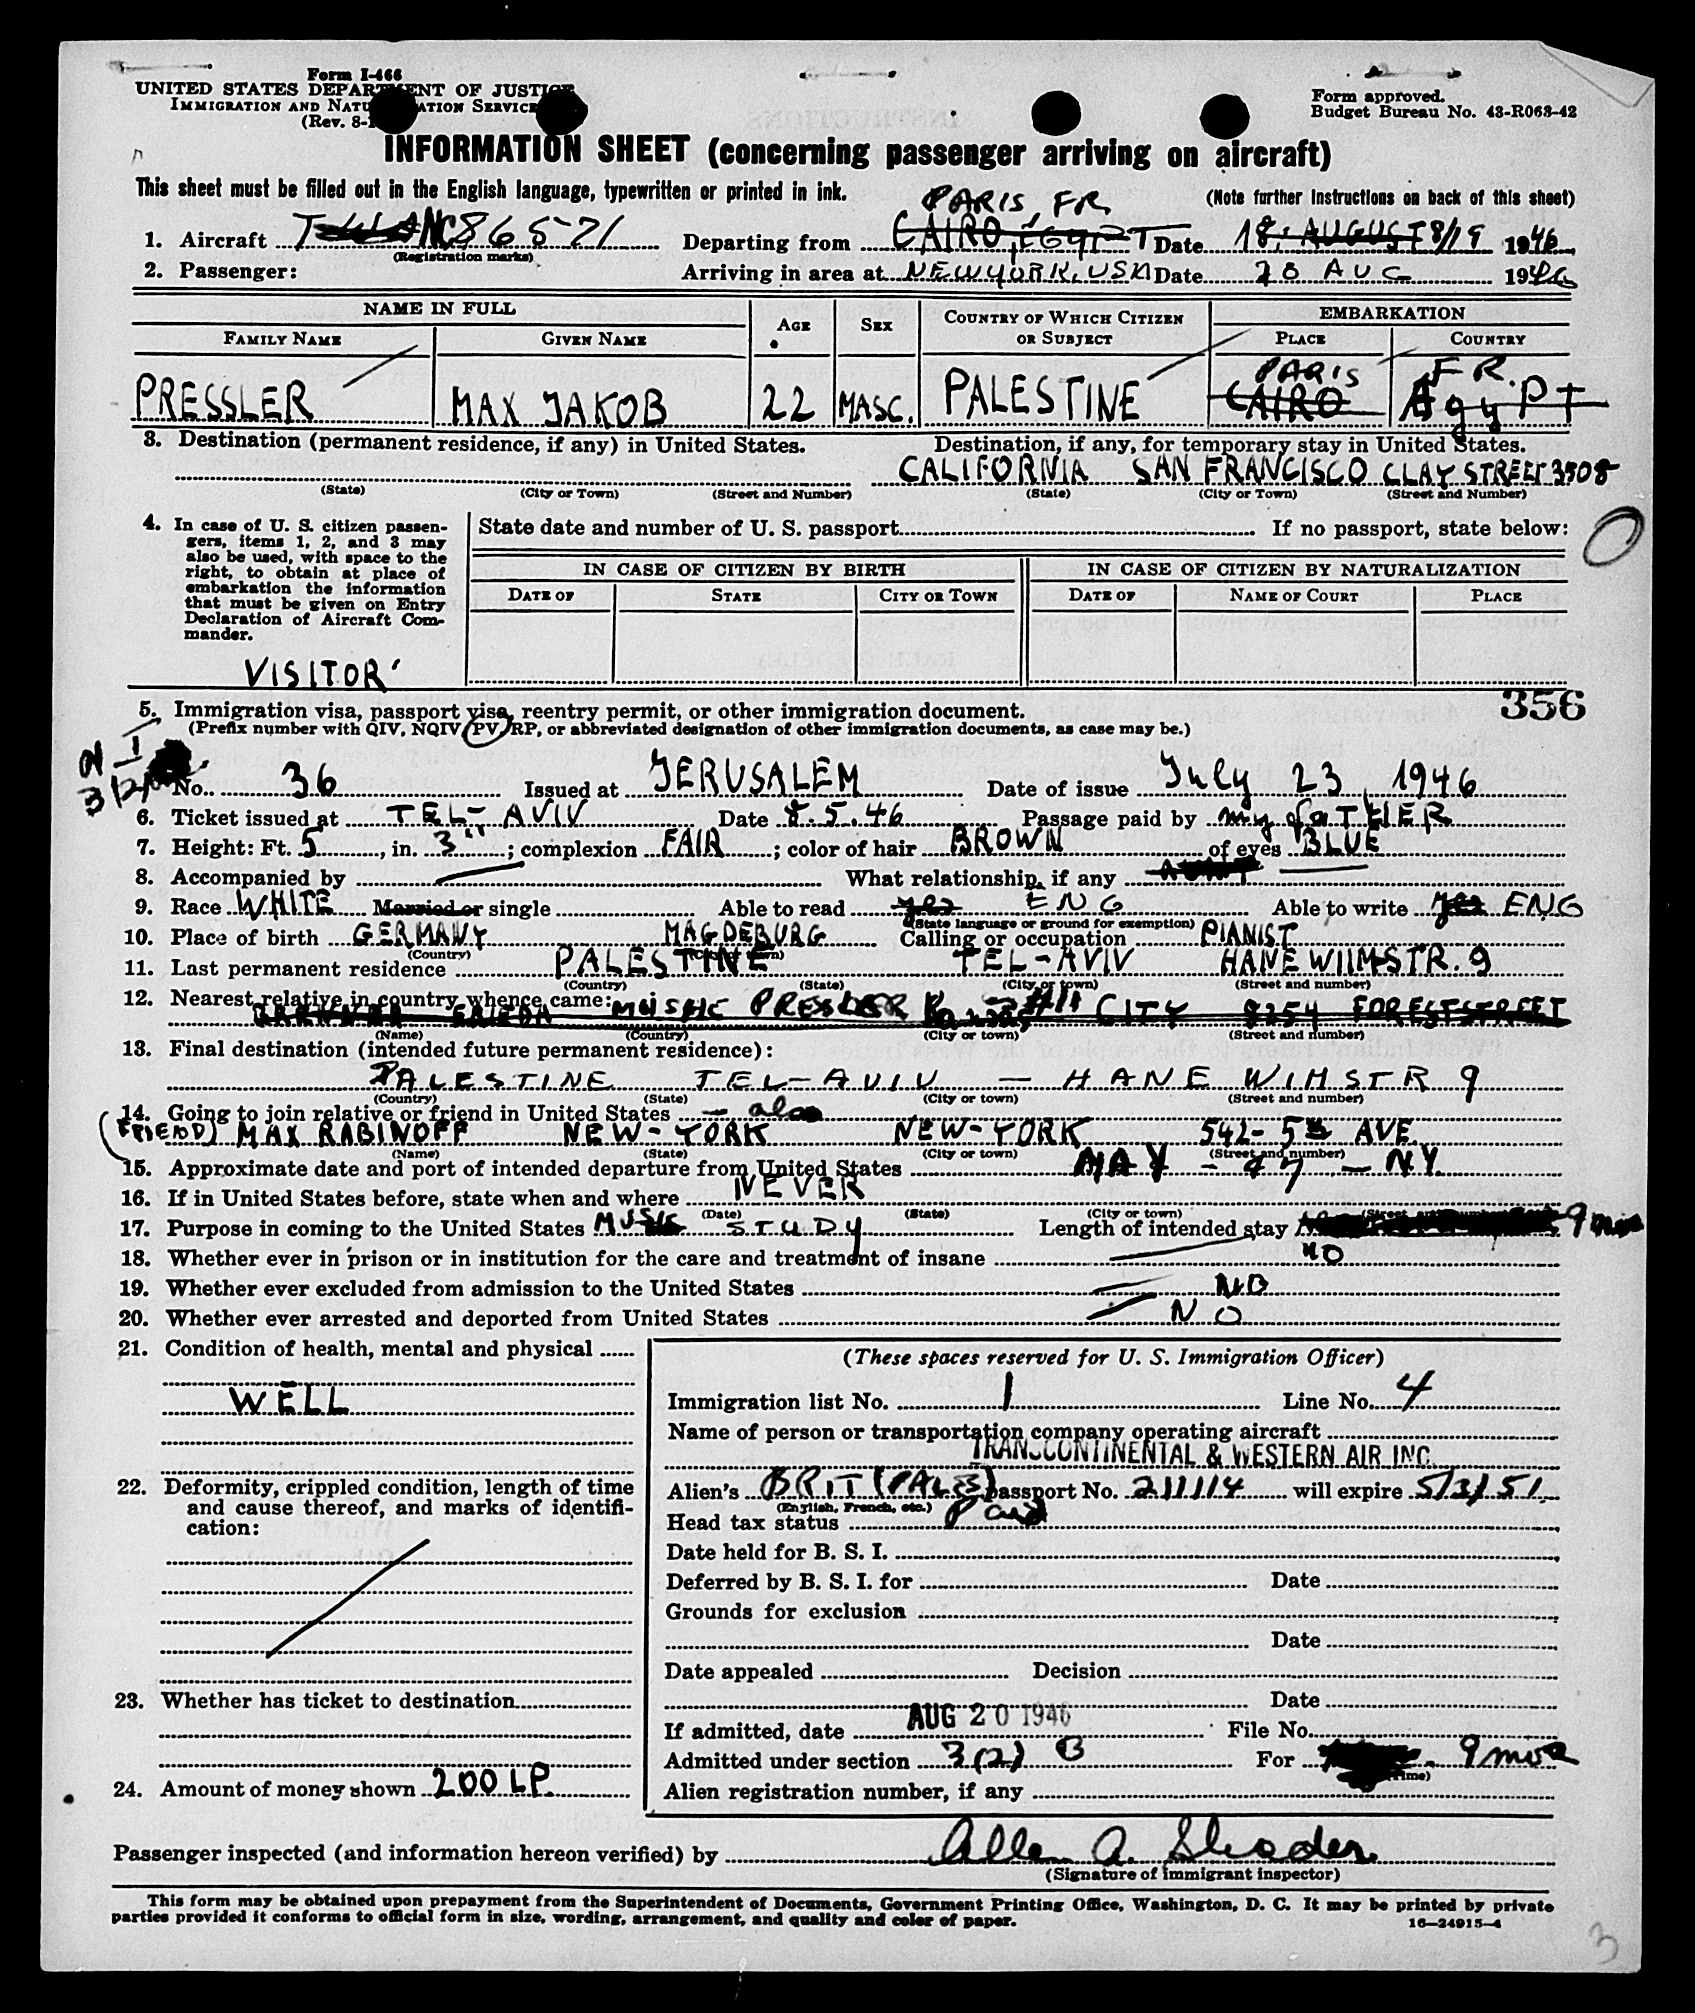 Form I-466
UNITED STATES DEPARTMENT OF JUSTICE
IMMIGRATION AND NATURALIZATION SERVICE
(Rev. 8-
Form approved.
Budget Bureau No. 43-R063-42
INFORMATION SHEET (concerning passenger arriving on aircraft)
This sheet must be filled out in the English language, typewritten or printed in ink.
(Note further instructions on back of this sheet)
PARIS, FR
1. Aircraft NC86521 Departing from CAIRO, EGYPT Date 18. AUGUST 8/19 1946
(Registration marks)
2. Passenger: Arriving in area at NEW YORK, USA Date 20 AUG 1946
NAME IN FULL
FAMILY NAME GIVEN NAME AGE SEX COUNTRY OF WHICH CITIZEN OR SUBJECT EMBARKATION
PLACE COUNTRY
PARIS FR.
PRESSLER MAX JAKOB 22 MASC. PALESTINE CAIRO AgyPT
3. Destination (permanent residence, if any) in United States. Destination, if any, for temporary stay in United States.
CALIFORNIA SAN FRANCISCO CLAY STREET 3508
(State) (City or Town) (Street and Number) (State) (City or Town) (Street and Number)
4. In case of U. S. citizen passen-
gers, items 1, 2, and 3 may
also be used, with space to the
right, to obtain at place of
embarkation the information
that must be given on Entry
Declaration of Aircraft Com-
mander.
VISITOR
State date and number of U. S. passport If no passport, state below:
IN CASE OF CITIZEN BY BIRTH IN CASE OF CITIZEN BY NATURALIZATION
DATE OF STATE CITY OR TOWN DATE OF NAME OF COURT PLACE
356
5. Immigration visa, passport visa, reentry permit, or other immigration document.
(Prefix number with QIV, NQIV, PV, RP, or abbreviated designation of other immigration documents, as case may be.)
No. 36 Issued at JERUSALEM Date of issue July 23, 1946
6. Ticket issued at TEL-AVIV Date 8.5.46 Passage paid by my faTHER
7. Height: Ft. 5, in. 3"; complexion FAIR; color of hair BROWN of eyes BLUE
8. Accompanied by What relationship, if any
9. Race WHITE Married or single Able to read yes ENG Able to write yes ENG
(State language or ground for exemption)
10. Place of birth GERMANY MAGDEBURG Calling or occupation PIANIST
(Country) (City or town)
11. Last permanent residence PALESTINE TEL-AVIV HANEWIIMSTR. 9
(Country) (State) (City or town) (Street and number)
12. Nearest relative in country whence came: MOISHE PRESSLER CITY 8254 FORESTSTREET
(Name) (Country) (City or town) (Street and number)
13. Final destination (intended future permanent residence):
PALESTINE TEL-AVIV - HANE WIMSTR 9
(Country) (State) (City or town) (Street and number)
14. Going to join relative or friend in United States - also
(FRIEND) MAX RABINOFF NEW-YORK NEW-YORK 542-5th AVE.
(Name) (State) (City or town) (Street and number)
15. Approximate date and port of intended departure from United States MAY - 47 - NY.
16. If in United States before, state when and where NEVER
(Date) (State) (City or town) (Street and number)
17. Purpose in coming to the United States MUSIC STUDY Length of intended stay 9 mos
18. Whether ever in prison or in institution for the care and treatment of insane NO
19. Whether ever excluded from admission to the United States NO
20. Whether ever arrested and deported from United States NO
21. Condition of health, mental and physical
WELL
22. Deformity, crippled condition, length of time
and cause thereof, and marks of identifi-
cation:
23. Whether has ticket to destination
24. Amount of money shown 200 LP.
(These spaces reserved for U. S. Immigration Officer)
Immigration list No. 1 Line No. 4
Name of person or transportation company operating aircraft
TRANSCONTINENTAL & WESTERN AIR INC.
Alien's BRIT (PALES) passport No. 211114 will expire 5/3/51
(English, French, etc.)
Head tax status Paid
Date held for B. S. I.
Deferred by B. S. I. for Date
Grounds for exclusion
Date
Date appealed Decision
Date
If admitted, date AUG 20 1946 File No.
Admitted under section 3(2) B For 9 mos
(Time)
Alien registration number, if any
Passenger inspected (and information hereon verified) by Allen A. Shader
(Signature of immigrant inspector)
This form may be obtained upon prepayment from the Superintendent of Documents, Government Printing Office, Washington, D. C. It may be printed by private
parties provided it conforms to official form in size, wording, arrangement, and quality and color of paper.
16-24915-4
3